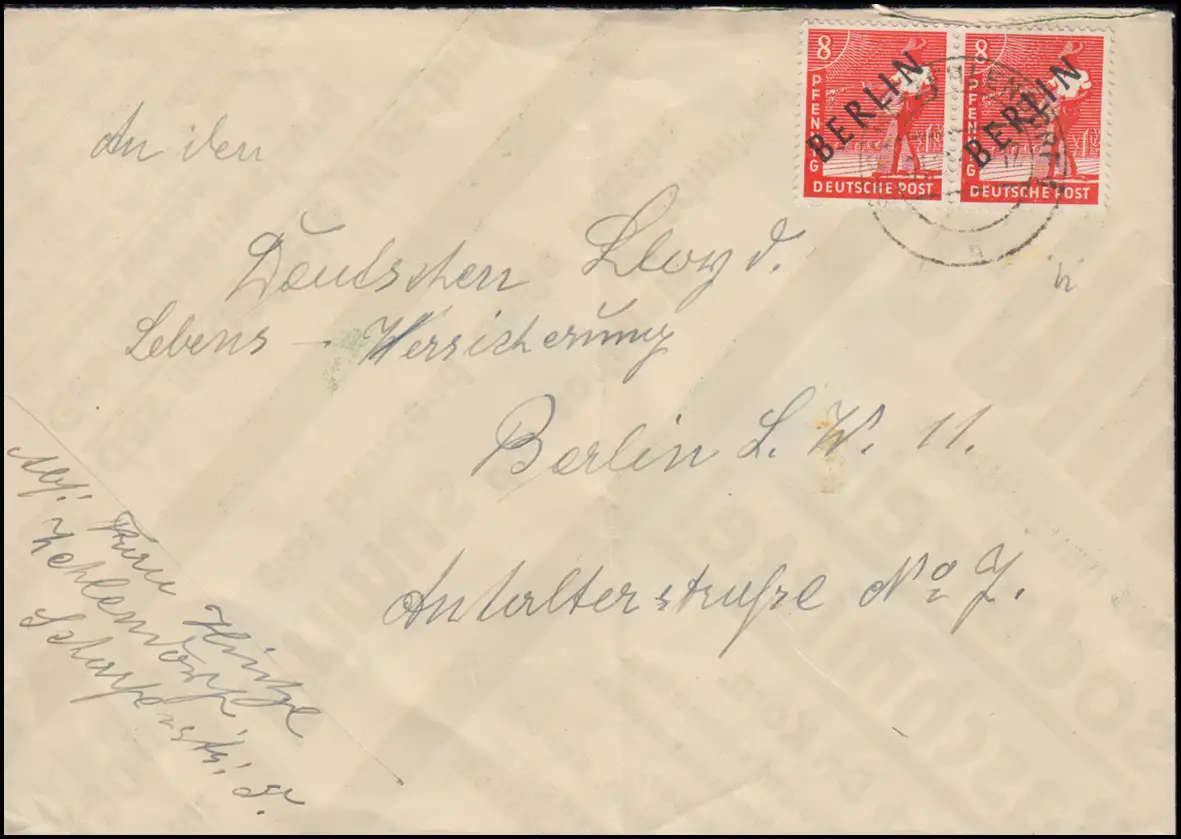 8 PFENNIG BERLIN DEUTSCHE POST
8 PFENNIG BERLIN DEUTSCHE POST
An den
Deutschen Lloyd.
Lebens - Versicherung
Berlin S. W. 11.
Anhalterstraße No 7.
Frau Hintze
Zehlendorf